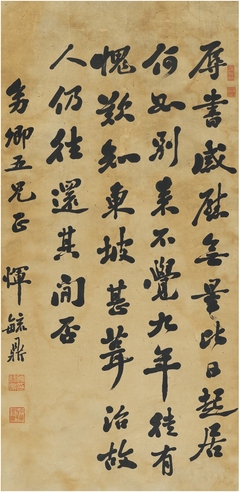 辱書感慰無量比日起居
何如別來不覺九年徒有
愧歎知東坡甚葺治故
人仍往還其間否
勇卿五兄正 惲毓鼎